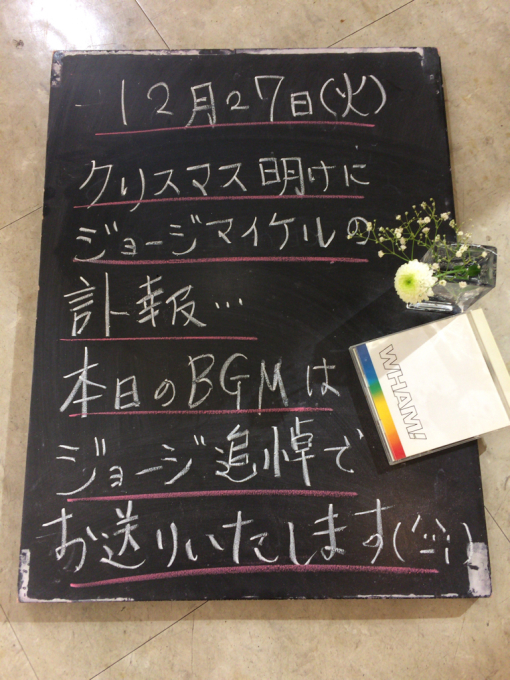 12月27日(火)
クリスマス明けに
ジョージマイケルの
訃報…
本日のBGMは
ジョージ追悼で
お送りいたします(^_^;)
WHAM!